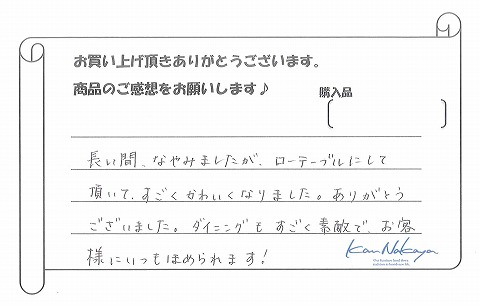 お買い上げ頂きありがとうございます。
商品のご感想をお願いします♪
購入品
長い間、なやみましたが、ローテーブルにして
頂いて、すごくかわいくなりました。ありがとう
ございました。ダイニングもすごく素敵で、お客
様にいつもほめられます!
Kan Nakaya